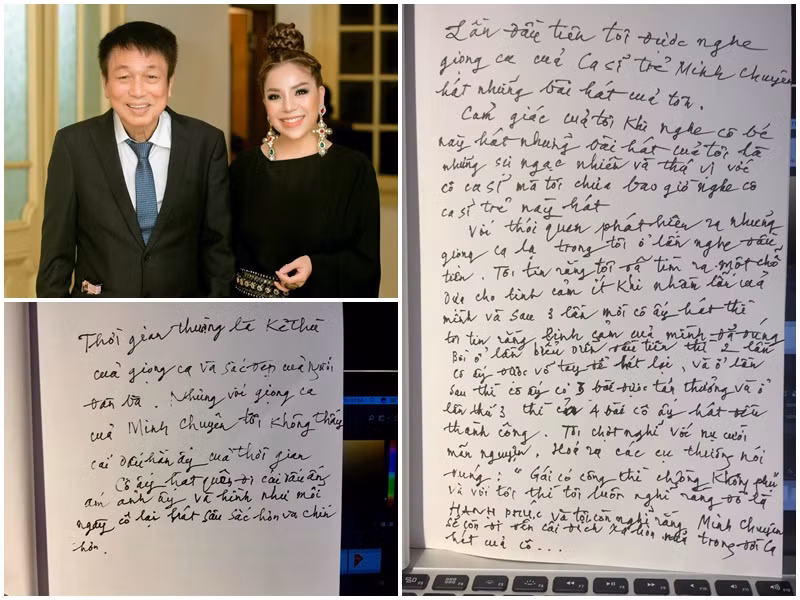 Lần đầu tiên tôi được nghe
giọng ca của Ca sĩ trẻ Minh Chuyên
hát những bài hát của tôi.
Cảm giác của tôi khi nghe cô bé
này hát những bài hát của tôi là
những sự ngạc nhiên và thú vị với
cô ca sĩ mà tôi chưa bao giờ nghe cô
ca sĩ trẻ này hát
Với thói quen phát hiện ra những
giọng ca lạ trong tôi ở lần nghe đầu
tiên. Tôi tin rằng tôi đã tìm ra một chỗ
dựa cho tình cảm ít khi nhầm lẫn của
mình và sau 3 lần mời cô ấy hát thì
tôi tin rằng tình cảm của mình đã đúng
Bởi ở lần biểu diễn đầu tiên thì 2 lần
cô ấy được vỗ tay để hát lại, và ở lần
sau thì cô ấy có 3 bài được tán thưởng và ở
lần thứ 3 thì cả 4 bài cô ấy hát đều
thành công. Tôi chợt nghĩ với nụ cười
mãn nguyện. Hoá ra các cụ thường nói
đúng: "Gái có công thì chồng không phụ
và với tôi thì tôi luôn nghĩ rằng đó là
HẠNH PHÚC và tôi còn nghĩ rằng Minh Chuyên
sẽ còn đi đến cái đích xa hơn nữa trong đời ca
hát của cô...
Thời gian thường là kẻ thù
của giọng ca và sắc đẹp của người
đàn bà. Nhưng với giọng ca
của Minh Chuyên tôi không thấy
cái dấu hằn ấy của thời gian
Cô ấy hát quên đi cái dấu ấn
ám ảnh ấy và hình như mỗi
ngày cô lại hát sâu sắc hơn và chín
hơn.